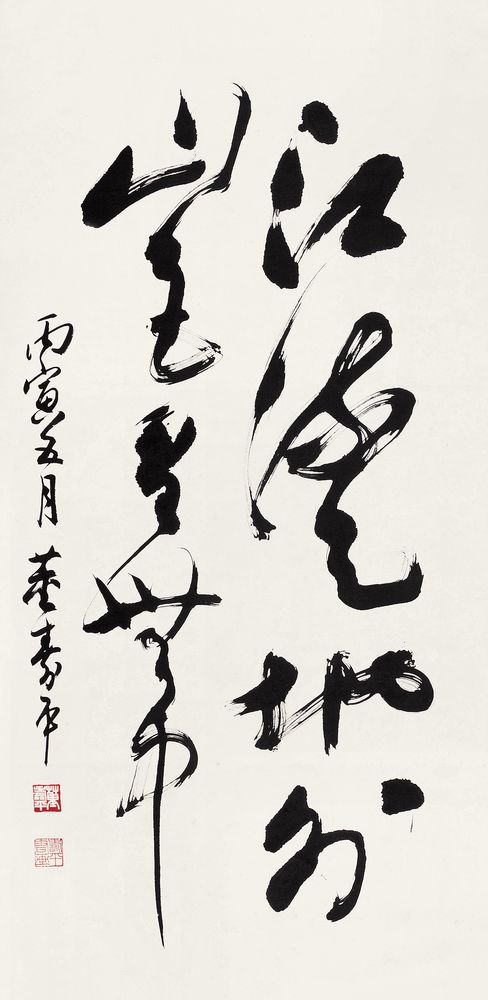 江流天地外
山色有無中
丙寅五月 董寿平